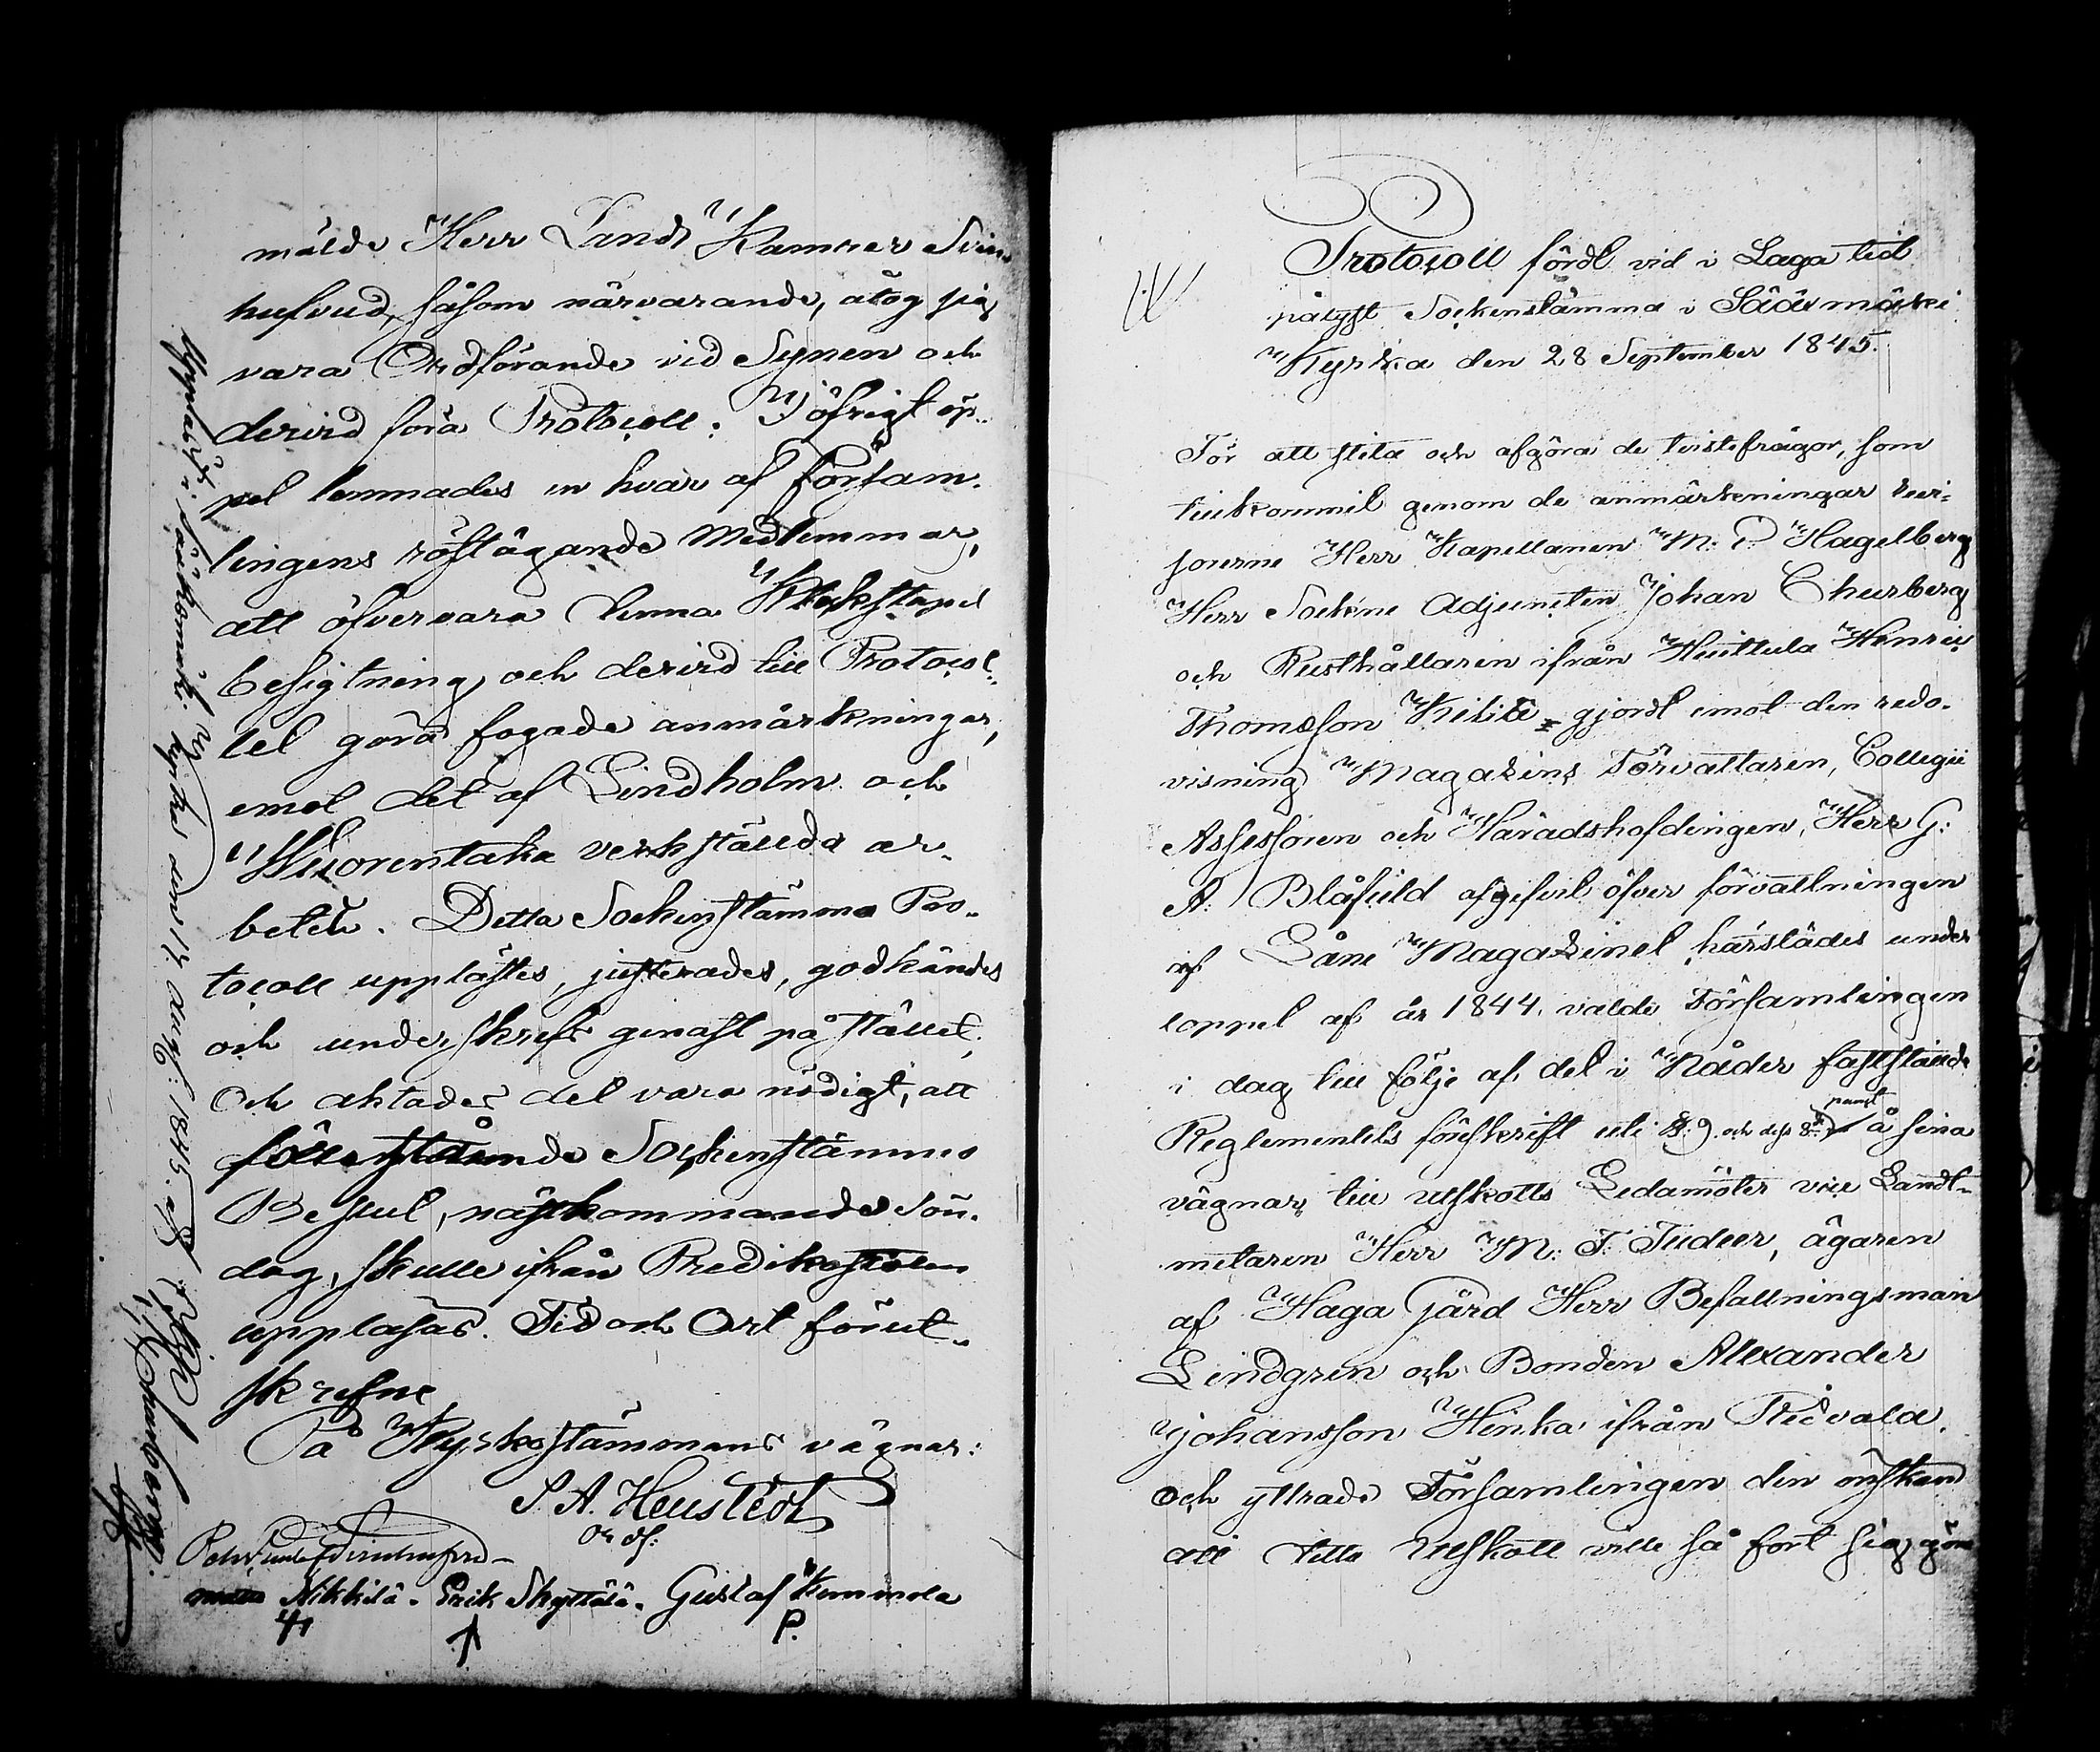 mälde Herr Lands Kamrer Svin
hufvud, såsom närvarande, åtog sig
vara Ordförande vid Synen och
dervid föra Protocoll. I öfrigt öp-
pet lemnades en hvar af försam-
lingens röstägande Medlemmar,
att öfvervara denna Klockstapel
besigtning och dervid till Protocol-
let göra fogade anmärkningar,
emot det af Lindholm och
Wuorentaka verkställda ar-
beten. Detta Sockenstämmo Pro-
tocoll upplästes, justerades, godkändes
och underskrefs genast på stället;
Och aktades det vara nödigt, att
Sockenstämmo
Beslut, nästkommande Sön-
dag, skulle ifrån Predikostolen
uppläsas. Tid och Ort förut-
skrefne
På Kyrkostämmans vägnar:
S. A. Heustedt
Ordf:
Nikkilä. Erik Skyttälä. Gustaf Kemmola
P.
Uppläst i Sääksmäki kyrka den 17 Aug: 1845. af Joh. Churberg.
Protocoll fördt vid i Laga tid
pålyst Sockenstämma i Sääxmäki
Kyrka den 28 September 1845.
För att slita och afgöra de tvistefrågor, som
tillkommit genom de anmärkningar Revi-
sorerne Herr Kapellanen M: P: Hagelberg
Herr Sockne Adjuncten Johan Churberg
och Rusthållaren ifrån Huittula Henric
Thomasson Kilila gjordt emot den redo-
visning Magazins Förvaltaren, Collegii
Assessoren och Häradshöfdingen, Herr G:
A: Blåfield afgifvit öfver förvaltningen
af Låne Magazinet härstädes under
loppet af år 1844, valde Församlingen
i dag till följe af det i Nåder fastställde
Reglementets föreskrift uti §: 9. och dess 8de punct å sina
vägnar, till utskotts Ledamöter vice Landt-
mätaren Herr M: F: Tudeer, ägaren
af Haga Gård Herr Befallningsman
Lindgren och Bonden Alexander
Johansson Hinka ifrån Ridvala.
och yttrade Församlingen den önskan
att detta Utskott ville så fort sig göra